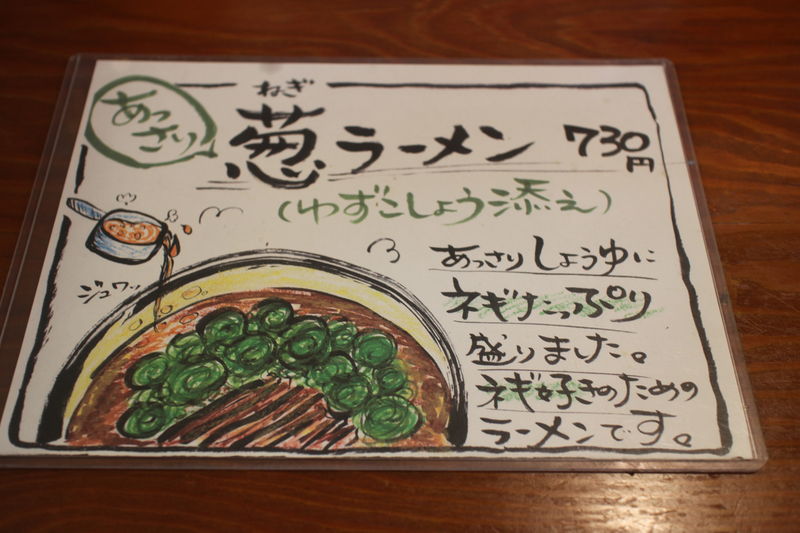 あっさり
ねぎ
葱ラーメン 730円
(ゆずこしょう添え)
ジュワッ
あっさりしょうゆに
ネギたっぷり
盛りました。
ネギ好きのための
ラーメンです。